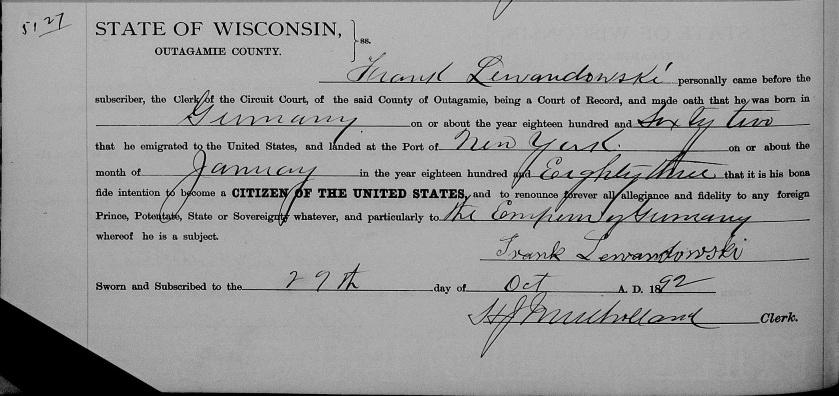 5127
STATE OF WISCONSIN,
OUTAGAMIE COUNTY. } ss.
Frank Lewandowski personally came before the
subscriber, the Clerk of the Circuit Court, of the said County of Outagamie, being a Court of Record, and made oath that he was born in
Germany on or about the year eighteen hundred and Sixty two
that he emigrated to the United States, and landed at the Port of New York. on or about the
month of January in the year eighteen hundred and Eighty three that it is his bona
fide intention to become a CITIZEN OF THE UNITED STATES, and to renounce forever all allegiance and fidelity to any foreign
Prince, Potentate, State or Sovereignty whatever, and particularly to the Emperor of Germany
whereof he is a subject.
Frank Lewandowski
Sworn and Subscribed to the 29th day of Oct A. D. 1892
H J Mulholland Clerk.